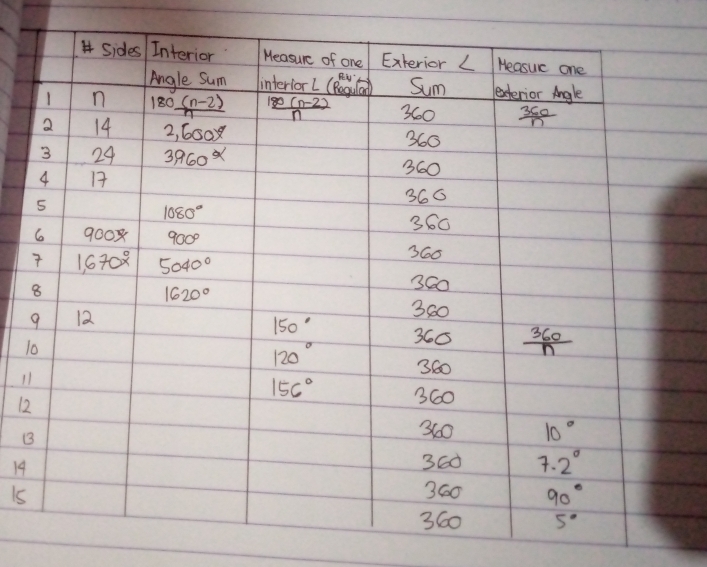 # Sides Interior Angle Sum Measure of one interior L (Regular) Exterior L Sum Measure one exterior Angle
1 n 180 (n-2) 180 (n-2) / n 360 360 / n
2 14 360
3 24 360
4 17 360
5 1080° 360
6 900° 360
7 5040° 360
8 1620° 360
9 12 150° 360 360 / n
10 120° 360
11 156° 360
12 360 10°
13 360 7.2°
14 360 90°
15 360 5°